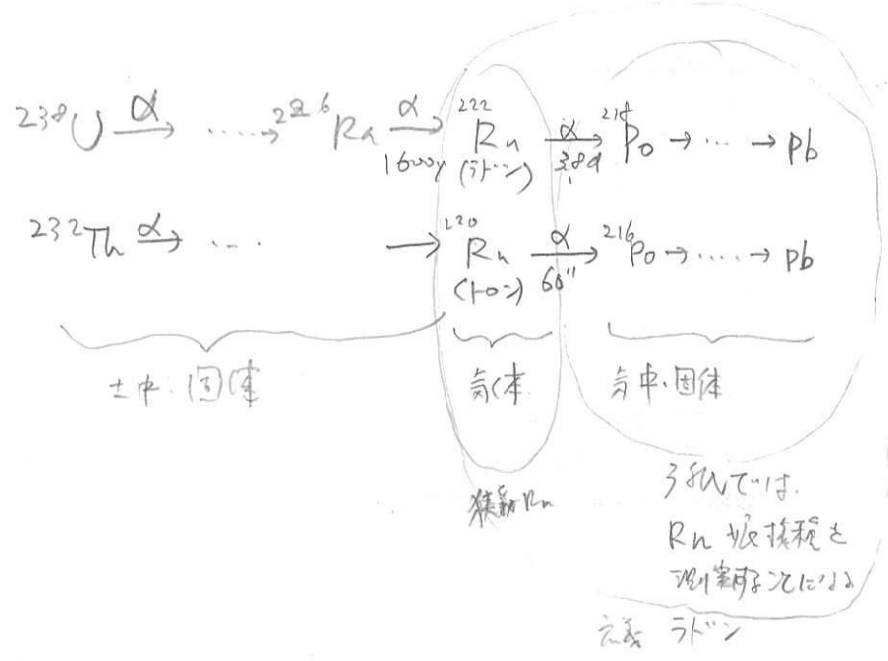 238U α→ ....→ 226Ra α→ 1600y 222Rn (ラドン) α→ 3.8d 218Po → ... → Pb
232Th α→ .... → 220Rn (トロン) α→ 66" 216Po → .... → Pb
土中・固体 気体 気中・固体
狭義Rn
ろ紙では、
Rn 娘核種を
測定することになる
広義 ラドン